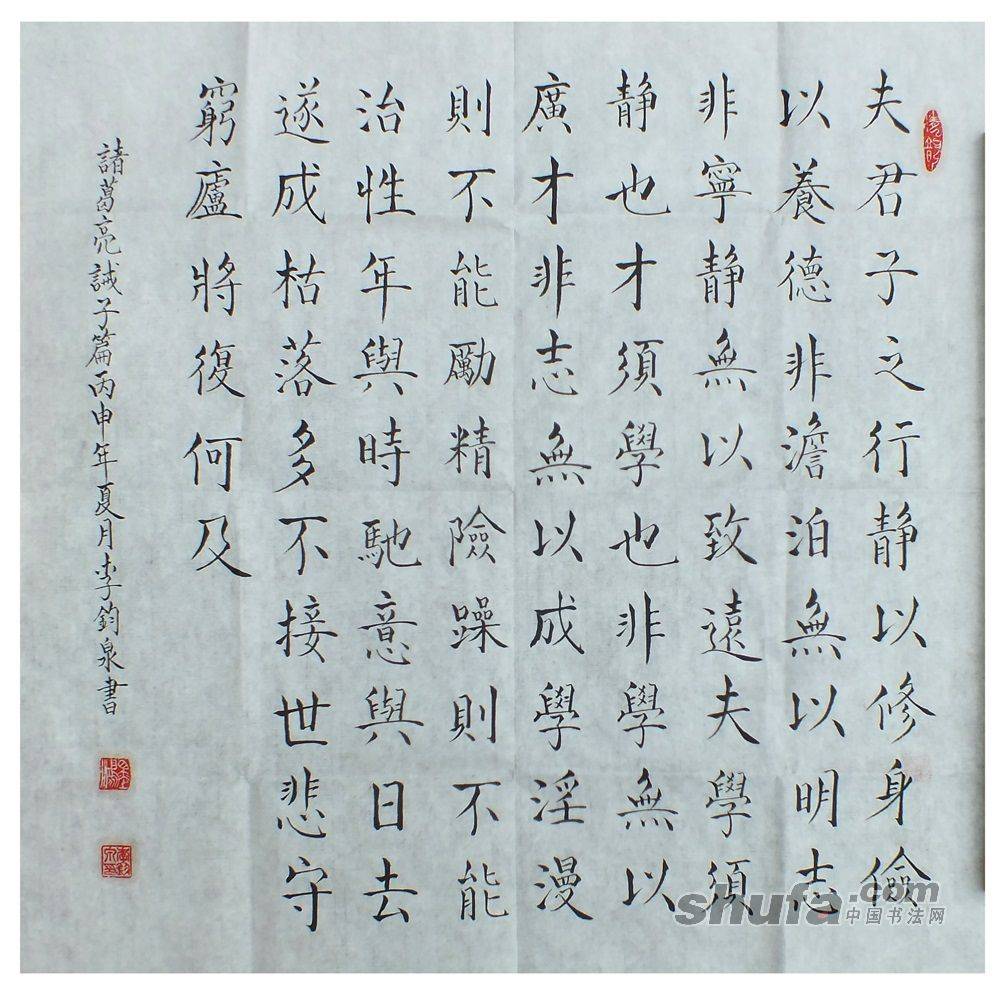 夫君子之行静以修身儉
以養德非澹泊無以明志
非寧静無以致遠夫學須
静也才須學也非學無以
廣才非志無以成學淫漫
則不能勵精險躁則不能
治性年與時馳意與日去
遂成枯落多不接世悲守
窮廬將復何及
諸葛亮誡子篇丙申年夏月李鈞泉書
shufa.com
中国书法网